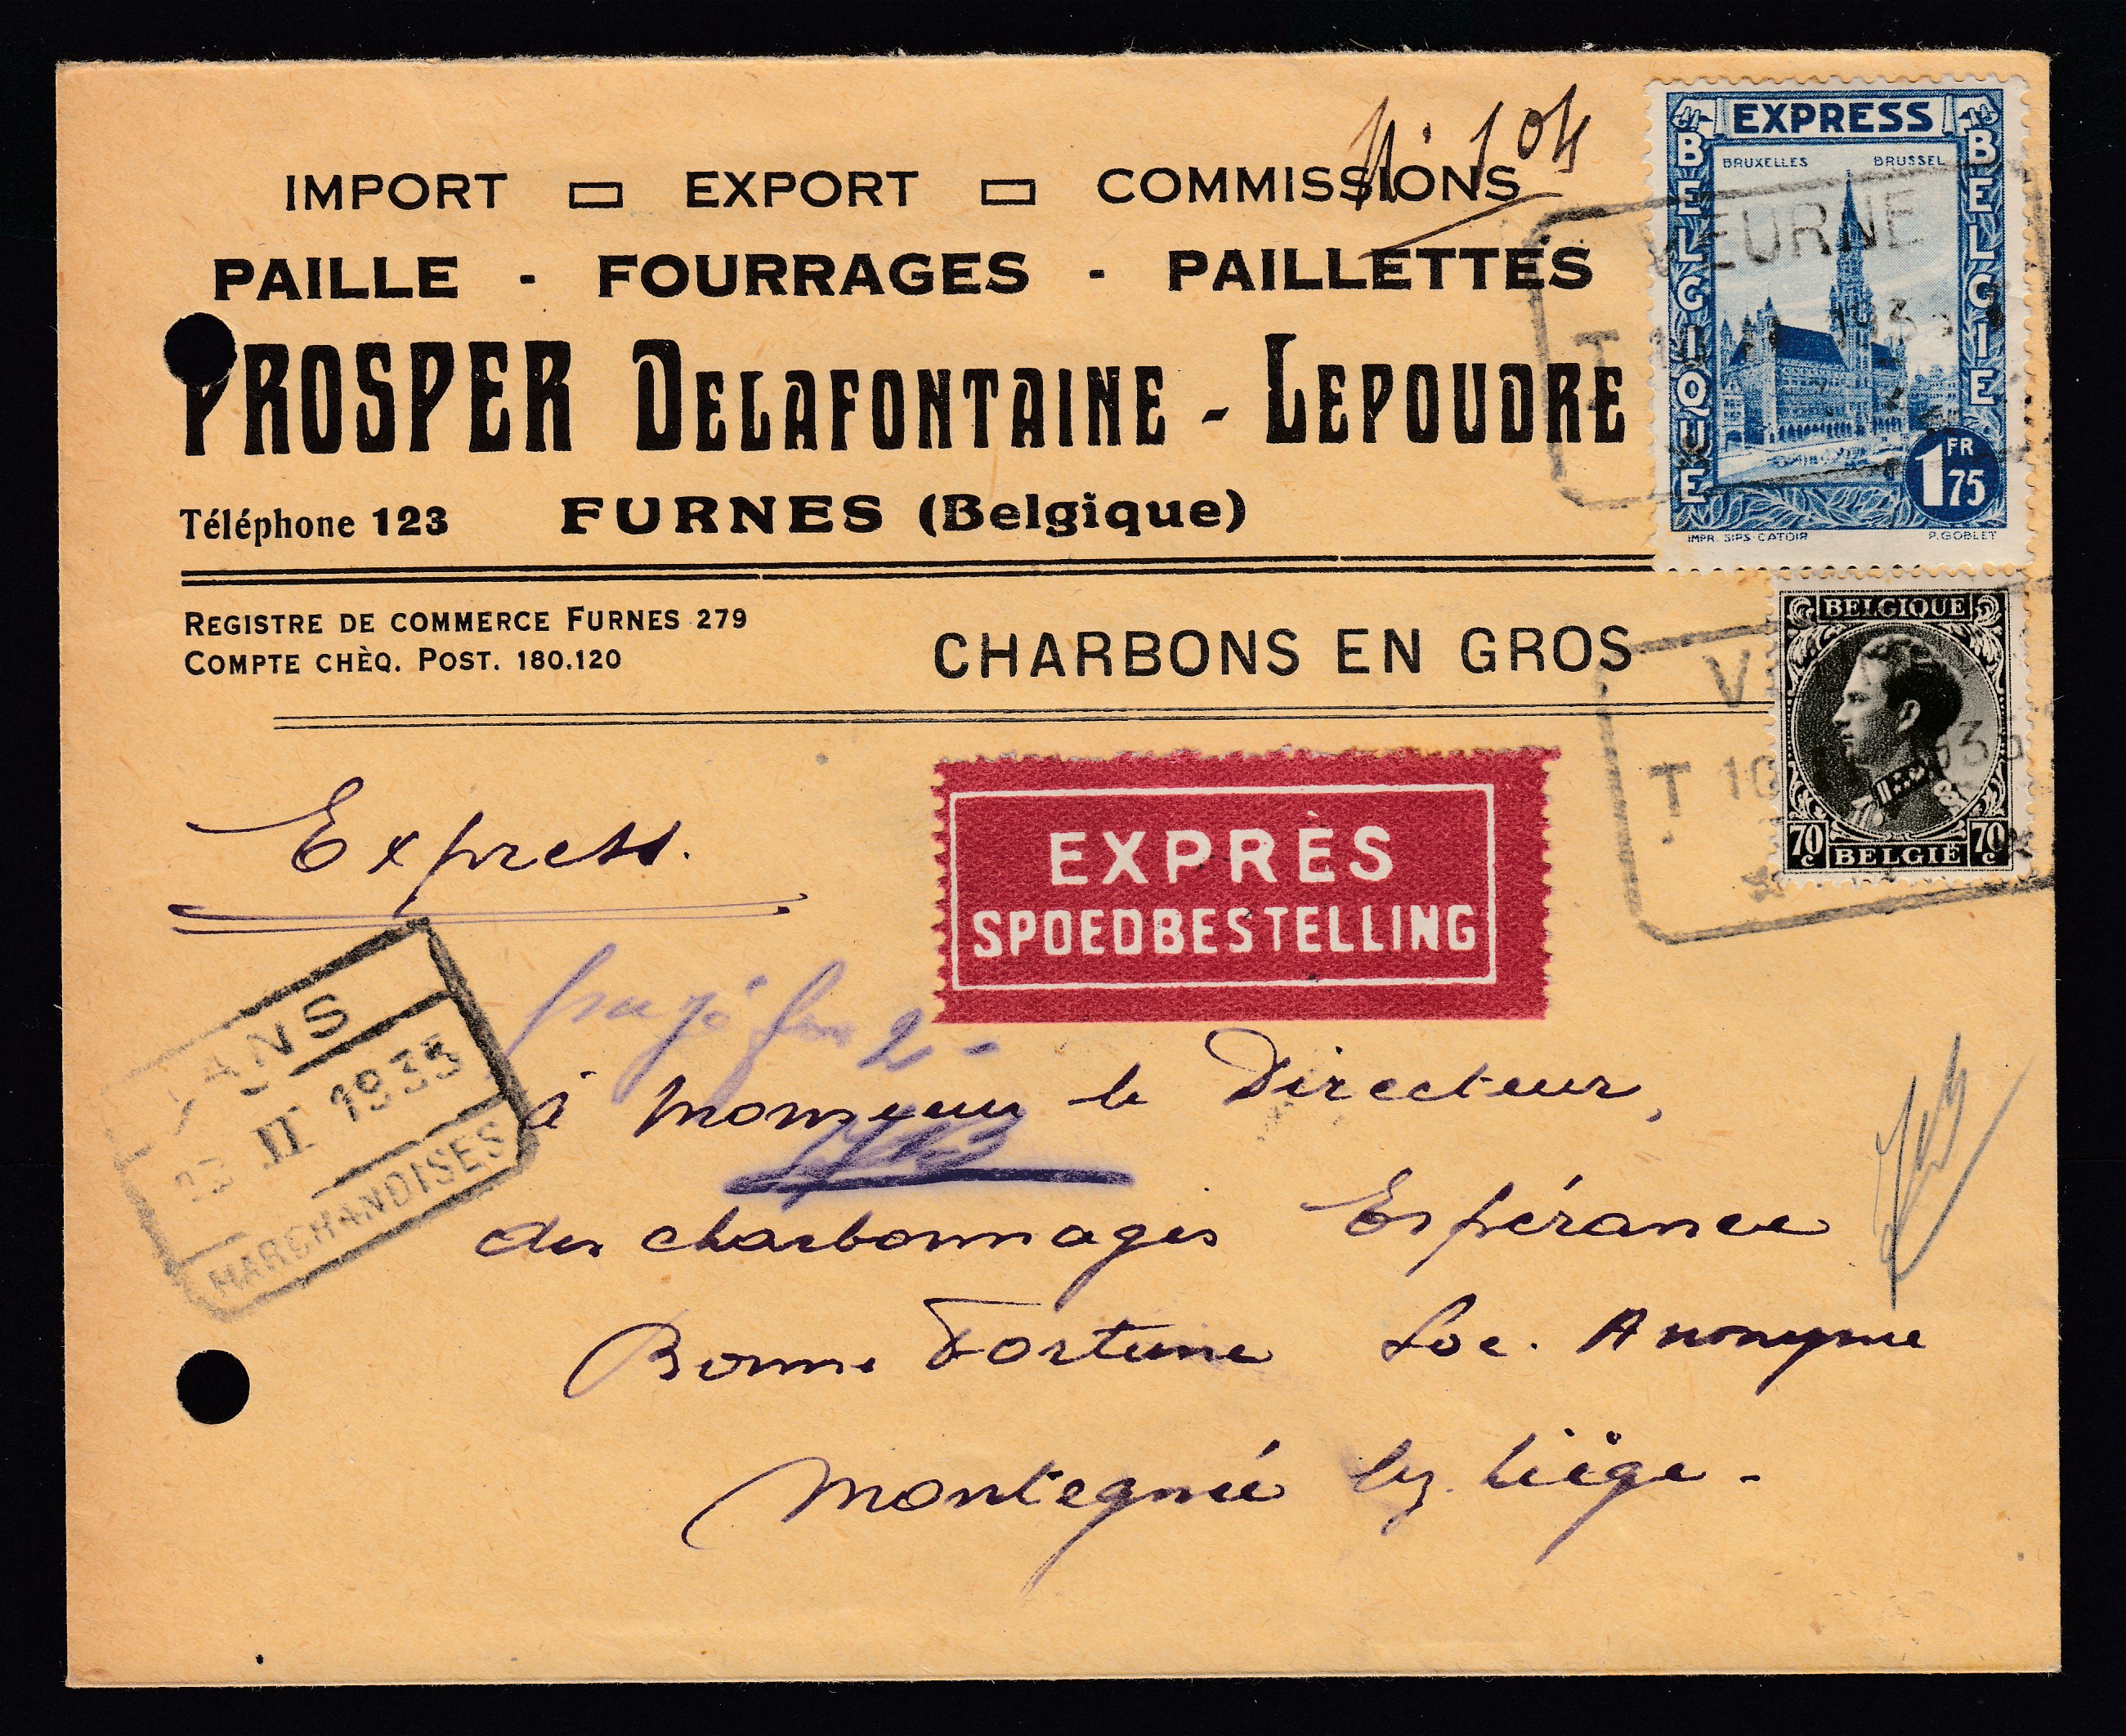 N° 104
IMPORT EXPORT COMMISSIONS
PAILLE - FOURRAGES - PAILLETTES
PROSPER DELAFONTAINE - LEPOUDRE
Téléphone 123 FURNES (Belgique)
REGISTRE DE COMMERCE FURNES 279
COMPTE CHÈQ. POST. 180.120
CHARBONS EN GROS
EXPRESS
BELGIQUE
BRUXELLES BRUSSEL
BELGIE
1 FR 75
IMPR. SIPS-CATOIR P. GOBLET
VEURNE
BELGIQUE
70 c BELGIË 70 c
T 10
Express.
EXPRÈS
SPOEDBESTELLING
ANS
II 1935
MARCHANDISES
à Monsieur le Directeur,
des charbonnages Espérance
Bonne Fortune Soc. Anonyme
Montegnée lez Liège -